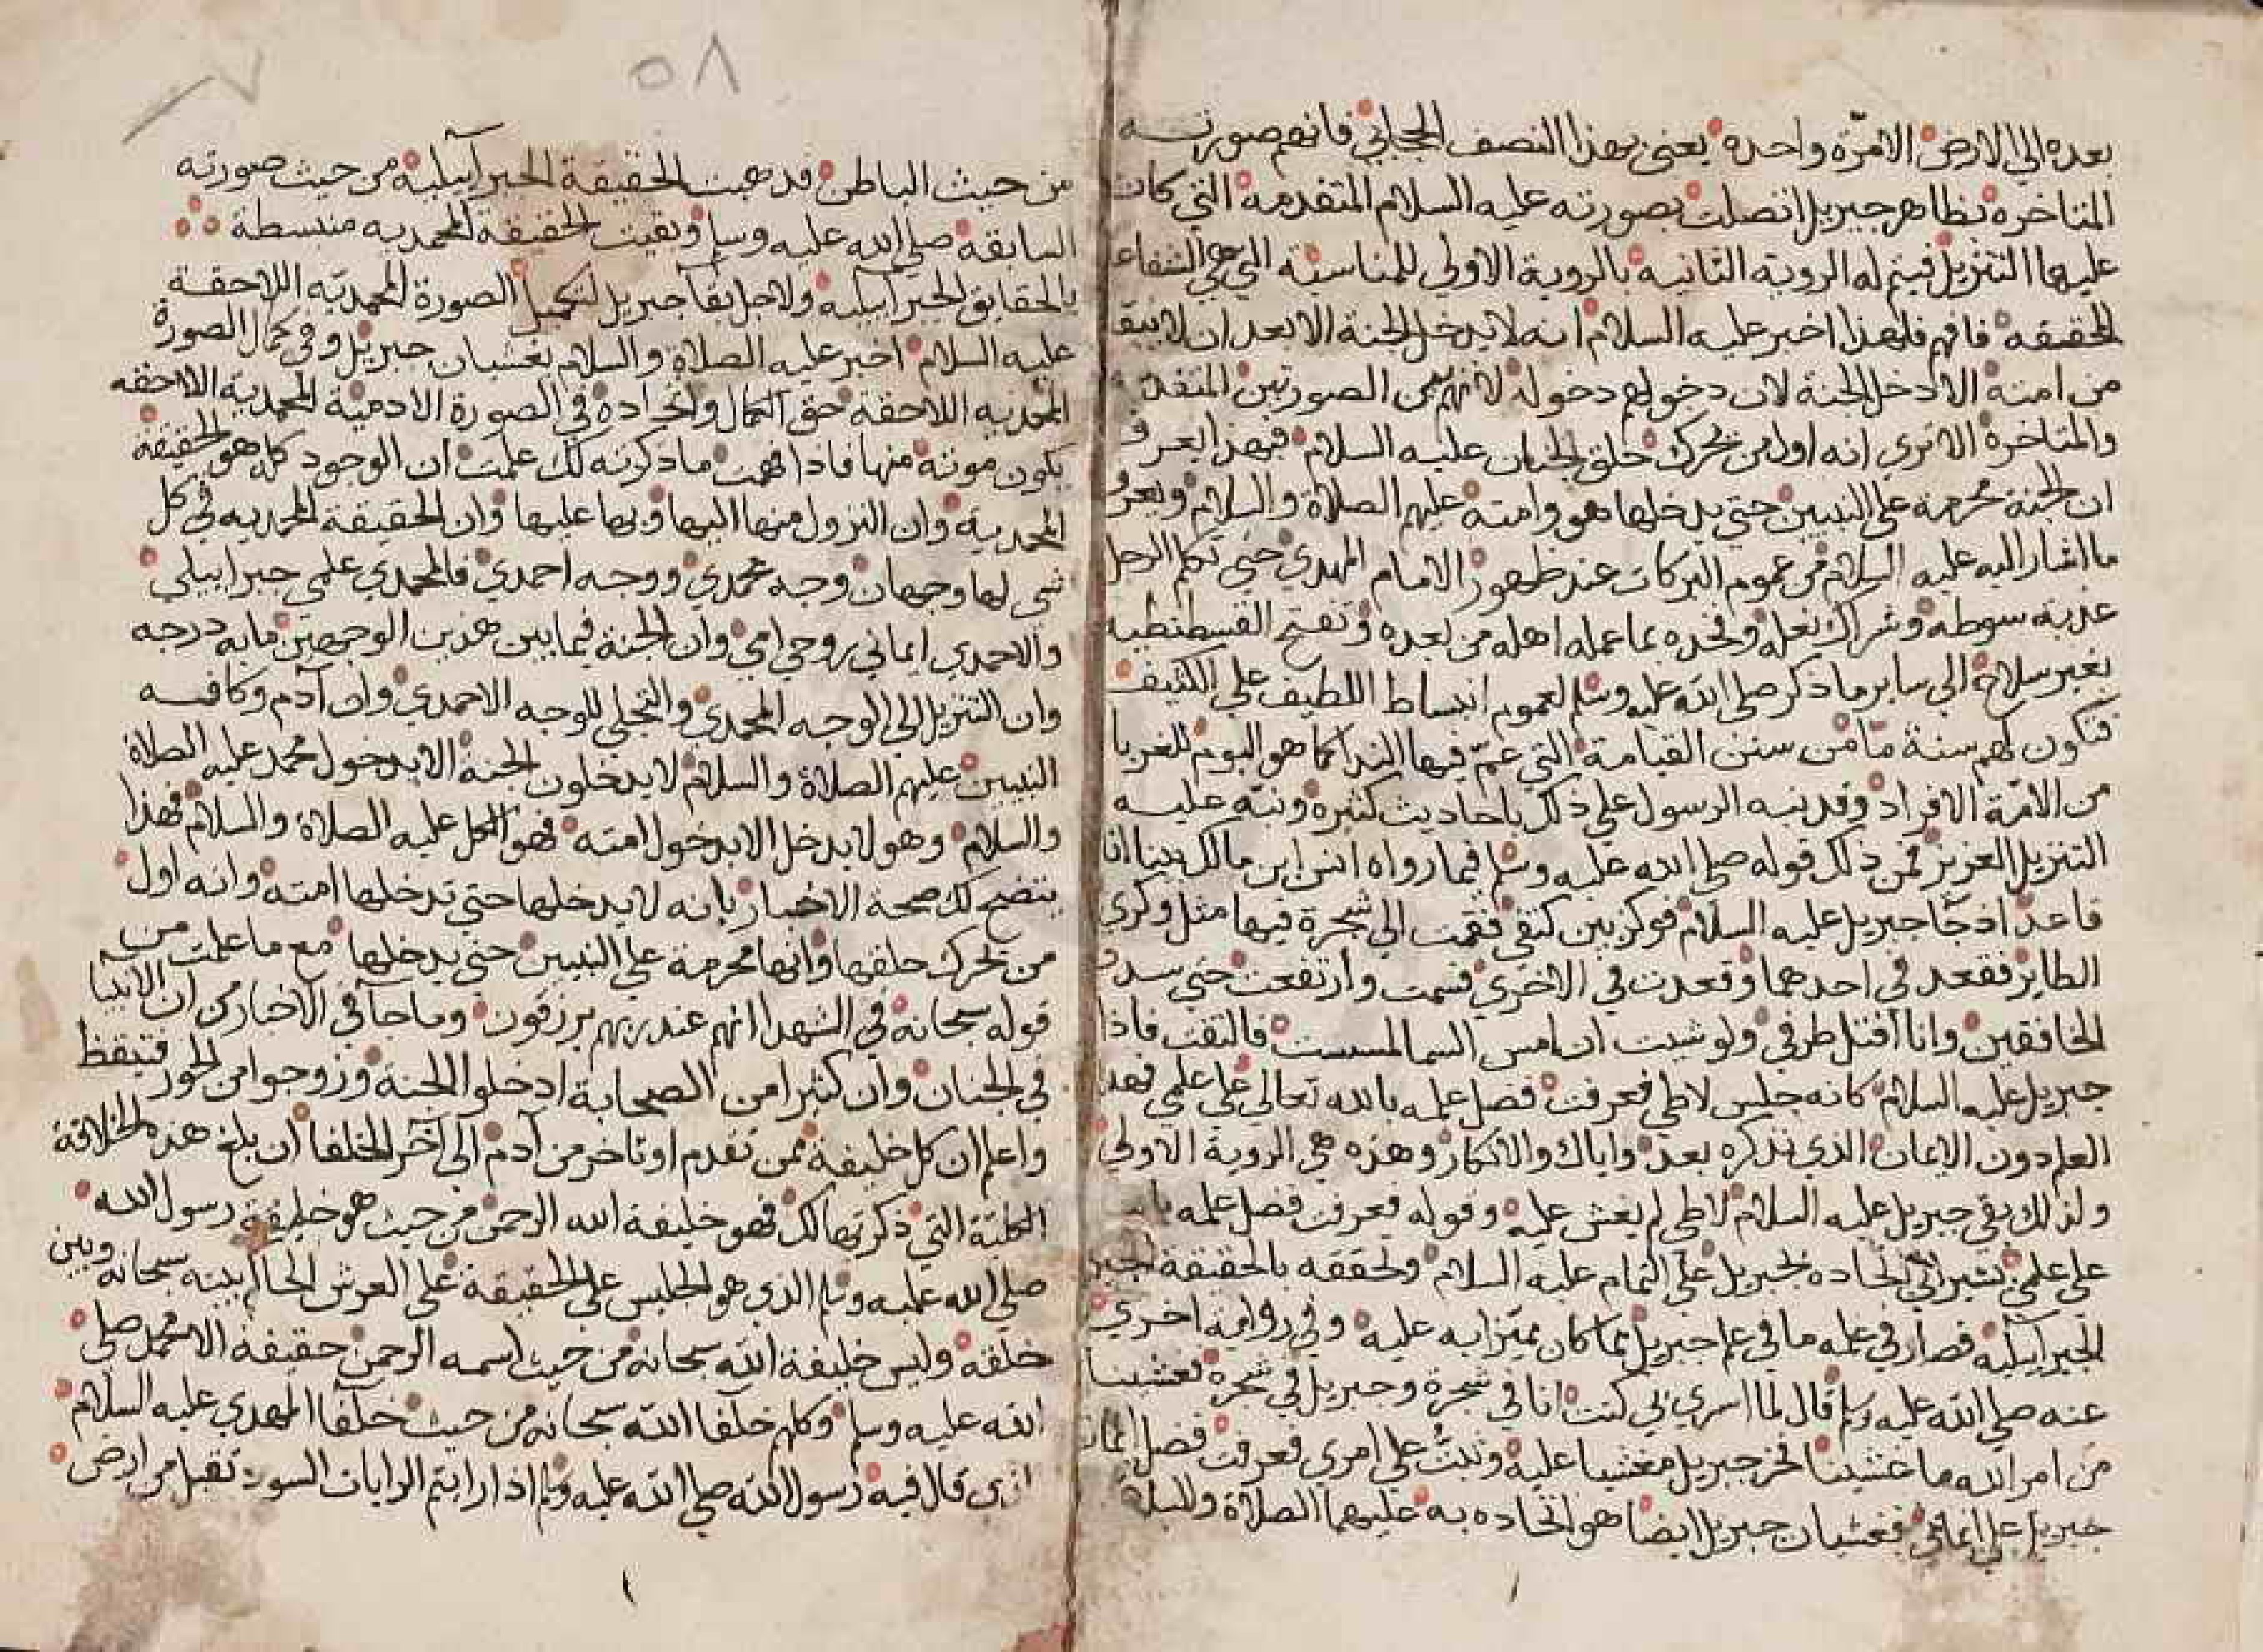 بعده الي الارض الامرّة واحدة يعني بهذا النصف الحجابي فافهم صورته
المتاخره بظاهر جبريل اتصلت بصورته عليه السلام المتقدمه التي كان
عليها التنزيل فيتم له الروية الثانيه بالروية الاولي للمناسبة التي هي الشفاعا
الحقيقه فافهم فلهذا اخبر عليه السلام انه لا يدخل الجنة الا بعد ان لا يبقا
من امته الا دخل الجنة لان دخولهم دخوله لانهم من الصورتين المتقدمة
والمتاخرة الا تري انه اول من يحرك حلق الجنان عليه السلام فبهذا يعرف
ان الجنة محرمة علي النبيين حتي يدخلها هو وامته عليهم الصلاة والسلام ويعرف
ما اشار اليه عليه السلام من عموم البركات عند ظهور الامام المهدي حتي تكلم الرجل
عذبة سوطه وشراك نعله وفخده بما عمله اهله من بعده وتفتح القسطنطيه
بغير سلاح الي ساير ما ذكر صلي الله عليه وسلم لعموم انبساط اللطيف علي الكثيف
فتكون لهم سنة مّا من سنن القيامة التي عمّ فيها الندا كما هو اليوم للغربا
من الامّة الافراد وقد نبه الرسول علي ذلك باحاديث كثيره ونبّه عليه
التنزيل العزيز فمن ذلك قوله صلي الله عليه وسلم فيما رواه انس ابن مالك بينا انا
قاعد اذ جّا جبريل عليه السلام فوكز بين كتفي فقمت الي شجرة فيها مثل وكري
الطاير فقعد في احدهما وقعدت في الاخري فسمت وارتفعت حتي سدت
الخافقين وانا اقتل طرفي ولو شيت ان امس السما لمسست فالتقت فاذا
جبريل عليه السلام كانه جلس لاطي فعرفت فضل علمه بالله تعالي علي علمي فهذا
العلم دون الايمان الذي نذكره بعد واياك والانكار وهذه هي الروية الاولي
ولذلك بقي جبريل عليه السلام لاطي لم يغش عليه وقوله فعرفت فضل علمه بالله
علي علمي تشير الي اتحاده بجبريل علي التمام عليه السلام وتحققه بالحقيقة الجبر
الجبرآييليه فصار في علمه ما في علم جبريل بما كان يميّزا به عليه وفي رواية اخري
عنه صلي الله عليه وسلم قال لما اسري بي كنت انا في شجرة وجبريل في شجرة فغشينا
من امر الله ما غشينا فخر جبريل مغشيا عليه وثبتُّ علي امري فعرفت فضل ايمان
جبريل علي ايماني فغشيان جبريل ايضا هو اتحاده به عليهما الصلاة وللبله
من حيث الباطن فذهبت الحقيقة الجبرآييلية من حيث صورته
السابقه صلي الله عليه وسلم وبقيت الحقيقة المحمديه منبسطة
بالحقايق الجبرآييليه ولاجل بقا جبريل لتكميل الصورة المحمديّه اللاحقة
عليه السلام اخبر عليه الصلاة والسلام بغشيان جبريل وفي كمال الصورة
المحمديه اللاحقة حق الكمال واتحاده في الصورة الادمية المحمدية اللاحقه
يكون موته منها فاذا فهمت ما ذكرته لك علمت ان الوجود كله هو الحقيقة
المحمدية وان النزول منها اليها وبها عليها وان الحقيقة المحمديه في كل
شي لها وجهان وجه محمدي ووجه احمدي فالمحمدي علمي جبراييلي
والاحمدي ايماني روحي امي وان الجنة فيما بين هذين الوجهين مايه درجه
وان التنزيل الي الوجه المحمدي والتجلي للوجه الاحمدي وان آدم وكافه
النبيين عليهم الصلاة والسلام لا يدخلون الجنة الا بدخول محمد عليه الصلاة
والسلام وهو لا يدخل الا بدخول امته فهو الكل عليه الصلاة والسلام فهذا
يتضح لك صحة الاخبار بانه لا يدخلها حتي تدخلها امته وانه اول
من يحرك حلقها وانها محرمة علي النبيين حتي يدخلها مع ما علمت من
قوله سبحانه في الشهدا انهم عند ربهم يرزقون وما جآ في الاخبار من ان الانبيا
في الجنان وان كثيرا من الصحابة ادخلوا الجنة وزوجوا من الحور فتيقظ
واعلم ان كل خليفة ممن تقدم او تاخر من آدم الي آخر الخلفا ان بلغ هذه الخلافة
الكليّة التي ذكرتها لك فهو خليفة الله الرحمن من حيث هو خليفة رسول الله
صلي الله عليه وسلم الذي هو الجليس علي الحقيقة علي العرش الحآلم بينه سبحانه وبين
خلقه وليس خليفة الله سبحانه من حيث اسمه الرحمن حقيقة الا محمد صلي
الله عليه وسلم وكلهم خلفا الله سبحانه من حيث خلفا المهدي عليه السلام
الذي قال فيه رسول الله صلي الله عليه وسلم اذا رايتم الرايات السود تقبل من ارض
٥٨